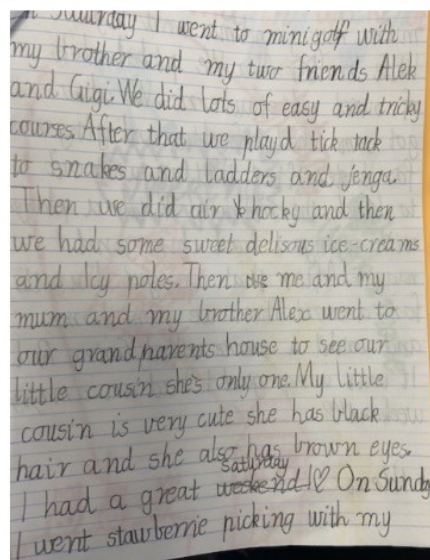 On Saturday I went to minigolf with
my brother and my two friends Alek
and Gigi. We did lots of easy and tricky
courses. After that we playd tick tack
to snakes and ladders and jenga.
Then we did air hocky and then
we had some sweet delisous ice-creams
and Icy poles. Then me and my
mum and my brother Alex went to
our grandparents house to see our
little cousin she's only one. My little
cousin is very cute she has black
hair and she also has brown eyes.
I had a great Saturday! ♡ On Sunday
I went stawberrie picking with my